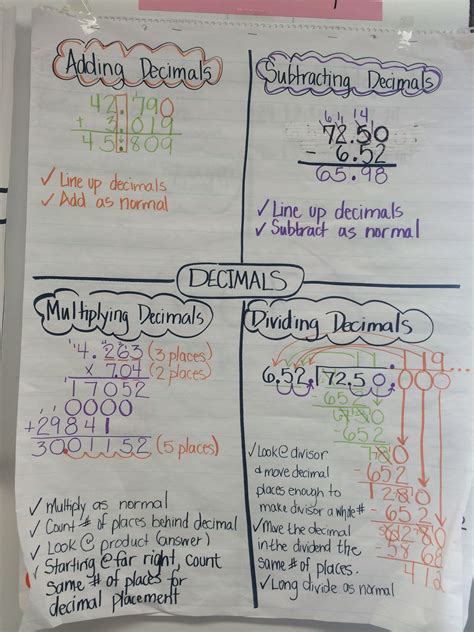 Adding Decimals
42.790
+ 3.019
45.809
✓ Line up decimals
✓ Add as normal
Subtracting Decimals
14
72.50
- 6.52
65.98
✓ Line up decimals
✓ Subtract as normal
DECIMALS
Multiplying Decimals
4.263 (3 places)
x 704 (2 places)
17052
0000
+29841
3001152 (5 places)
✓ Multiply as normal
✓ Count # of places behind decimal
✓ Look @ product (answer)
✓ Starting @ far right, count
same # of places for
decimal placement
Dividing Decimals
11.119...
6.52.72.50.000
- 652
730
652
780
- 652
1280
- 652
6280
- 5868
412
✓ Look @ divisor
& move decimal
places enough to
make divisor a whole #
✓ Move the decimal
in the dividend the
same # of places.
✓ Long divide as normal